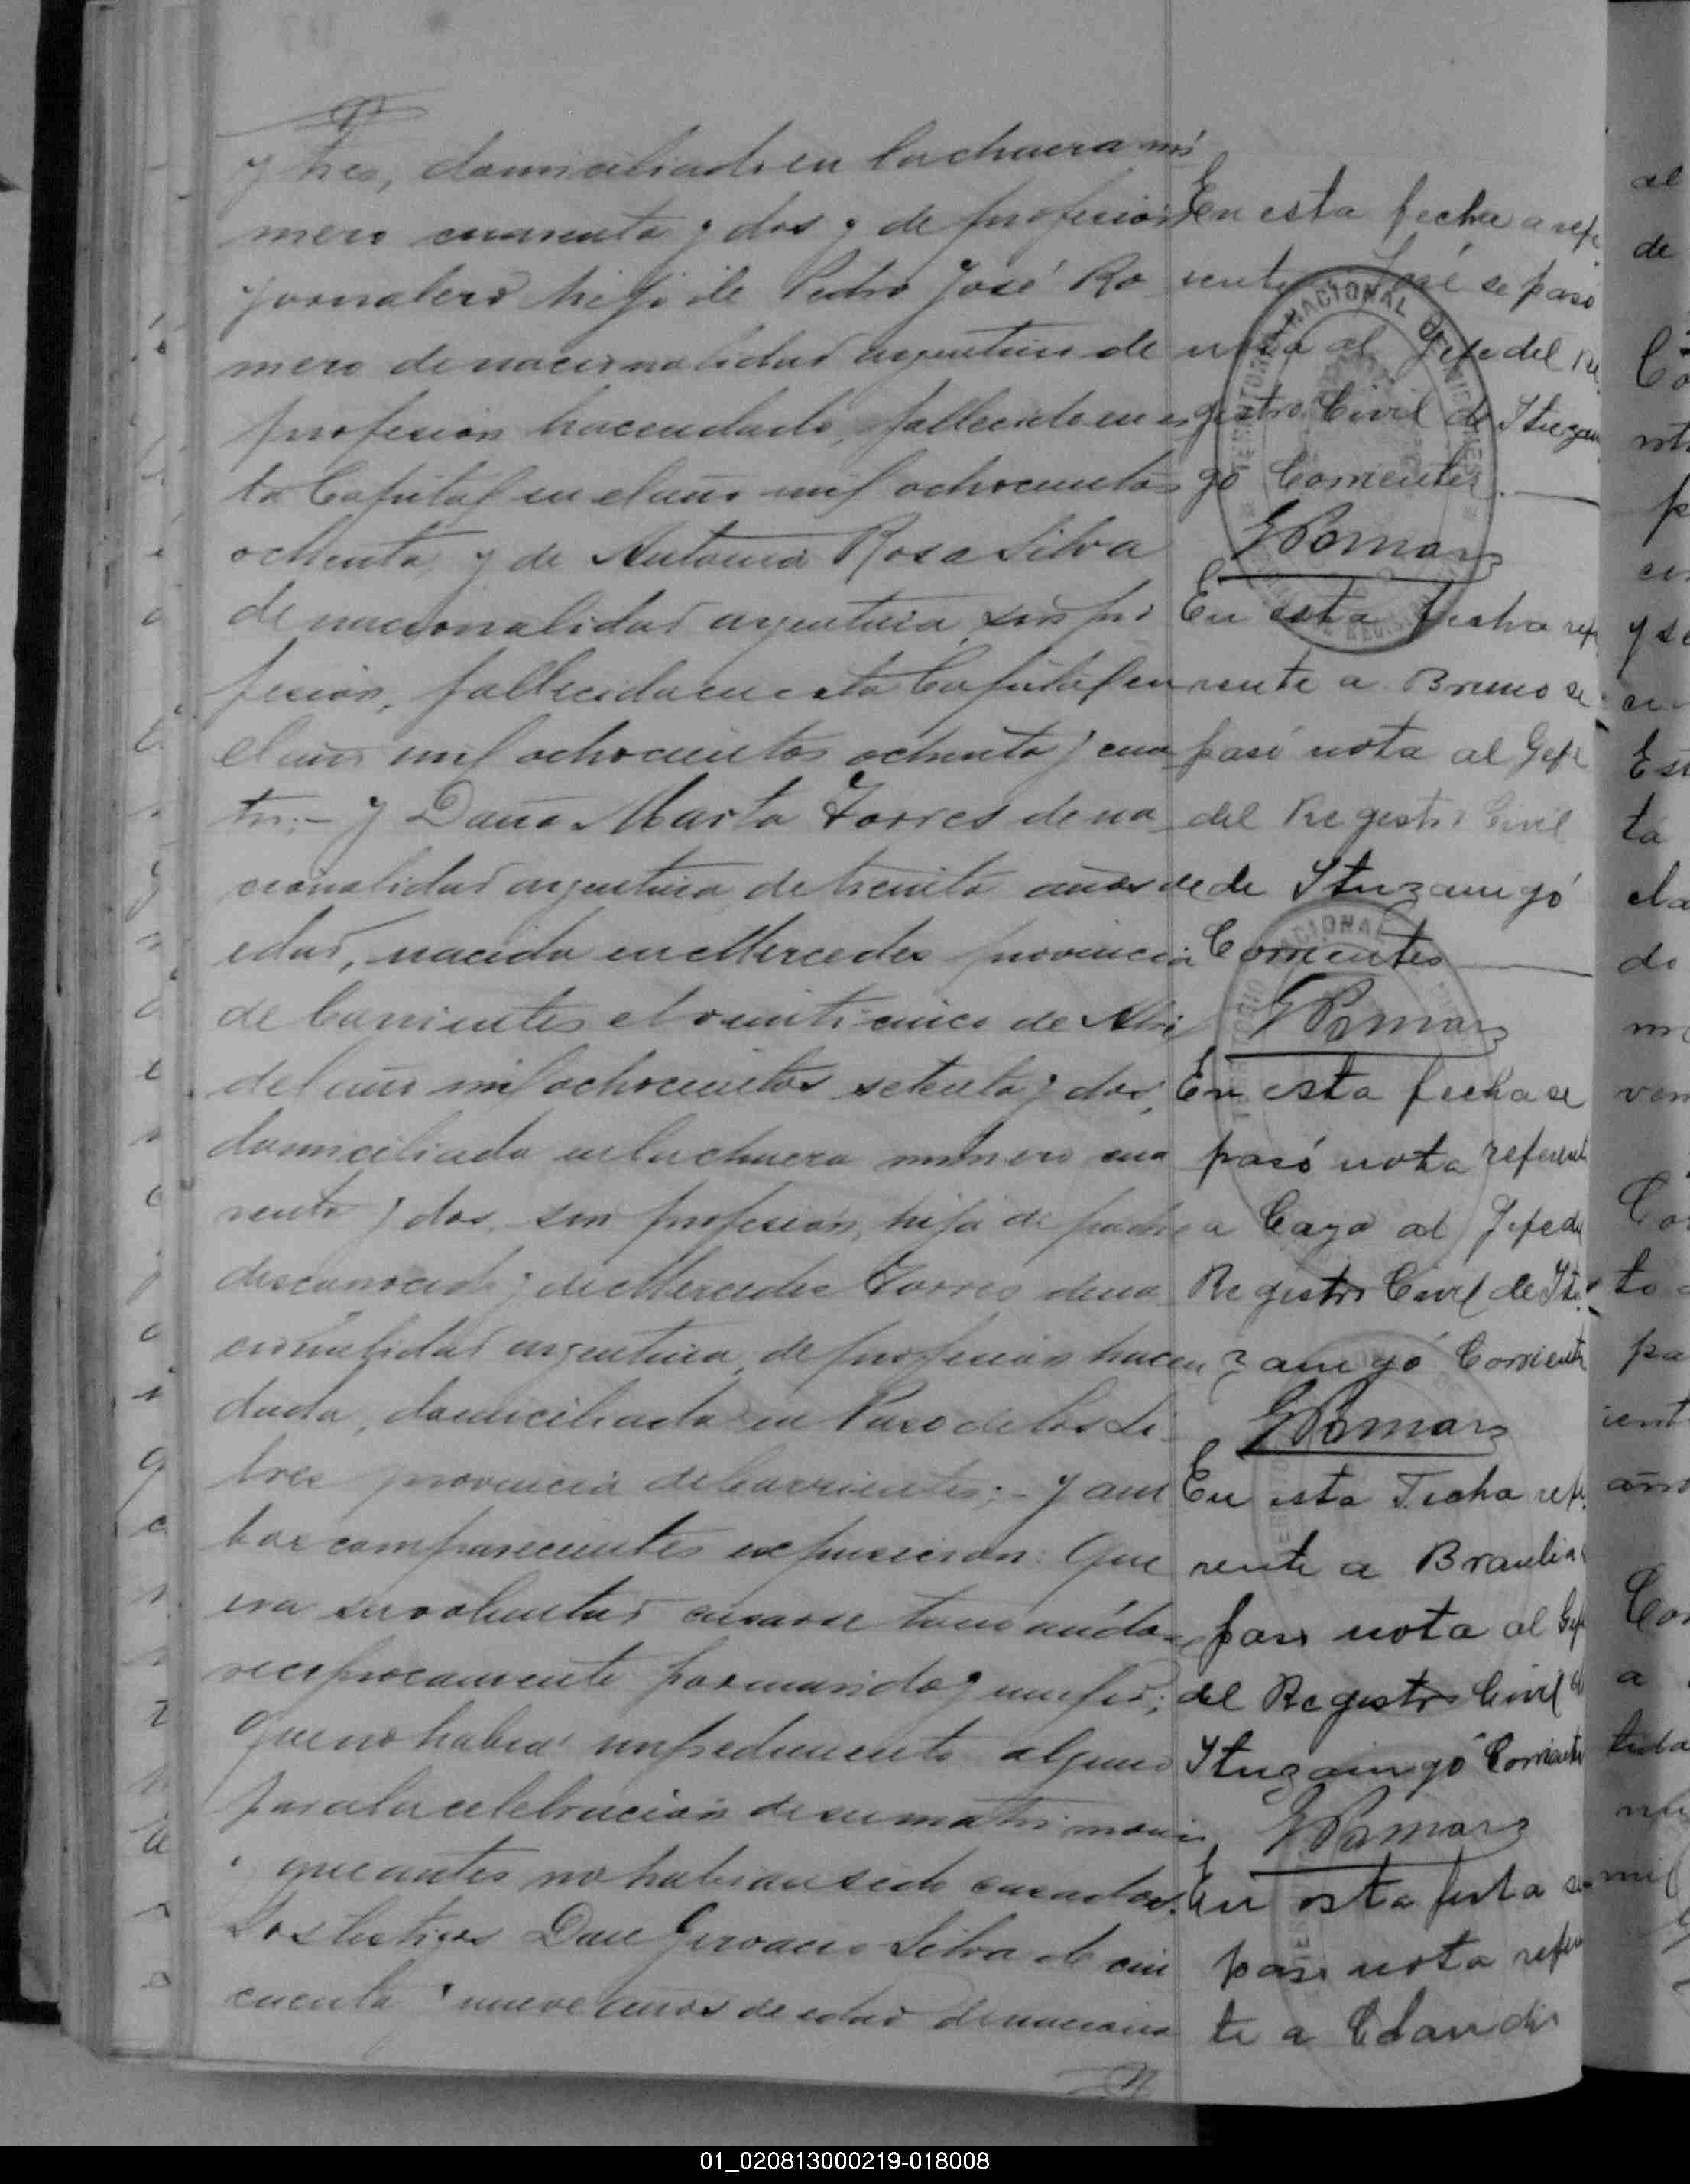 y tres, domiciliado en la chacra nú
mero cuarenta y dos y de profesion
jornalero hijo de Pedro José Ro
mero de nacionalidad argentino de
profesion hacendado, fallecido en es
ta Capital en el año mil ochocientos
ochenta y de Antonia Rosa Silva
de nacionalidad argentina, sin pro
fesion, fallecida en esta Capital en
el año mil ochocientos ochenta y cua
tro;- y Doña Marta Torres de na
cionalidad argentina, de treinta años de
edad, nacida en Mercedes provincia
de Corrientes el veinticinco de Abril
del año mil ochocientos setenta y dos,
domiciliada en la chacra número cua
renta y dos, sin profesion, hija de padre
desconocido y de Mercedes Torres de na
cionalidad argentina, de profesion hacen
dada, domiciliada en Paso de los Li
bres provincia de Corrientes;- y am
bos comparecientes expusieron: Que
era su voluntad casarse tomandose
reciprocamente por marido y mujer;
que no habia impedimento alguno
para la celebracion de su matrimonio
y que antes no habian sido casados.
Los testigos Don Gervacio Silva de cin
cuenta y nueve años de edad de naciona
En esta fecha a refe
rente José se pasó
nota al Jefe del Re
gistro Civil de Ituzain
gó Corrientes.
G Pomar
En esta fecha refe
rente a Bruno se
pasó nota al Gefe
del Registro Civil
de Ituzaingó
Corrientes
G Pomar
En esta fecha se
pasó nota referente
a Cayo al Jefe del
Registro Civil de Itu
zaingó Corrientes
G Pomar
En esta Fecha refe
rente a Braulia
paso nota al Gefe
del Registro Civil de
Ituzaingó Corrientes
G Pomar
En esta fecha se
paso nota referen
te a Claudio
01_020813000219-018008